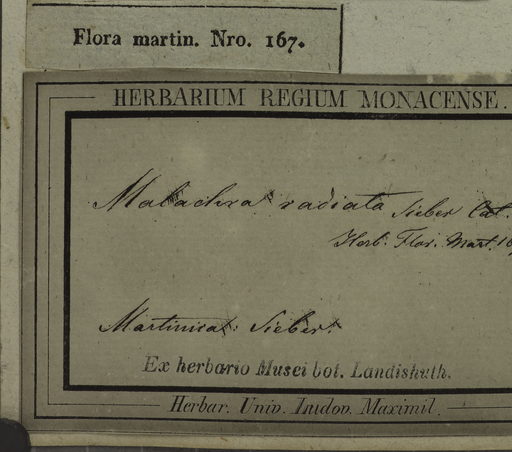 Flora martin. Nro. 167.
HERBARIUM REGIUM MONACENSE.
Malachra radiata Sieber Cat.
Herb. Flor. Mart. 16
Martinica: Sieber.
Ex herbario Musei bot. Landishuth.
Herbar. Univ. Ludov. Maximil.